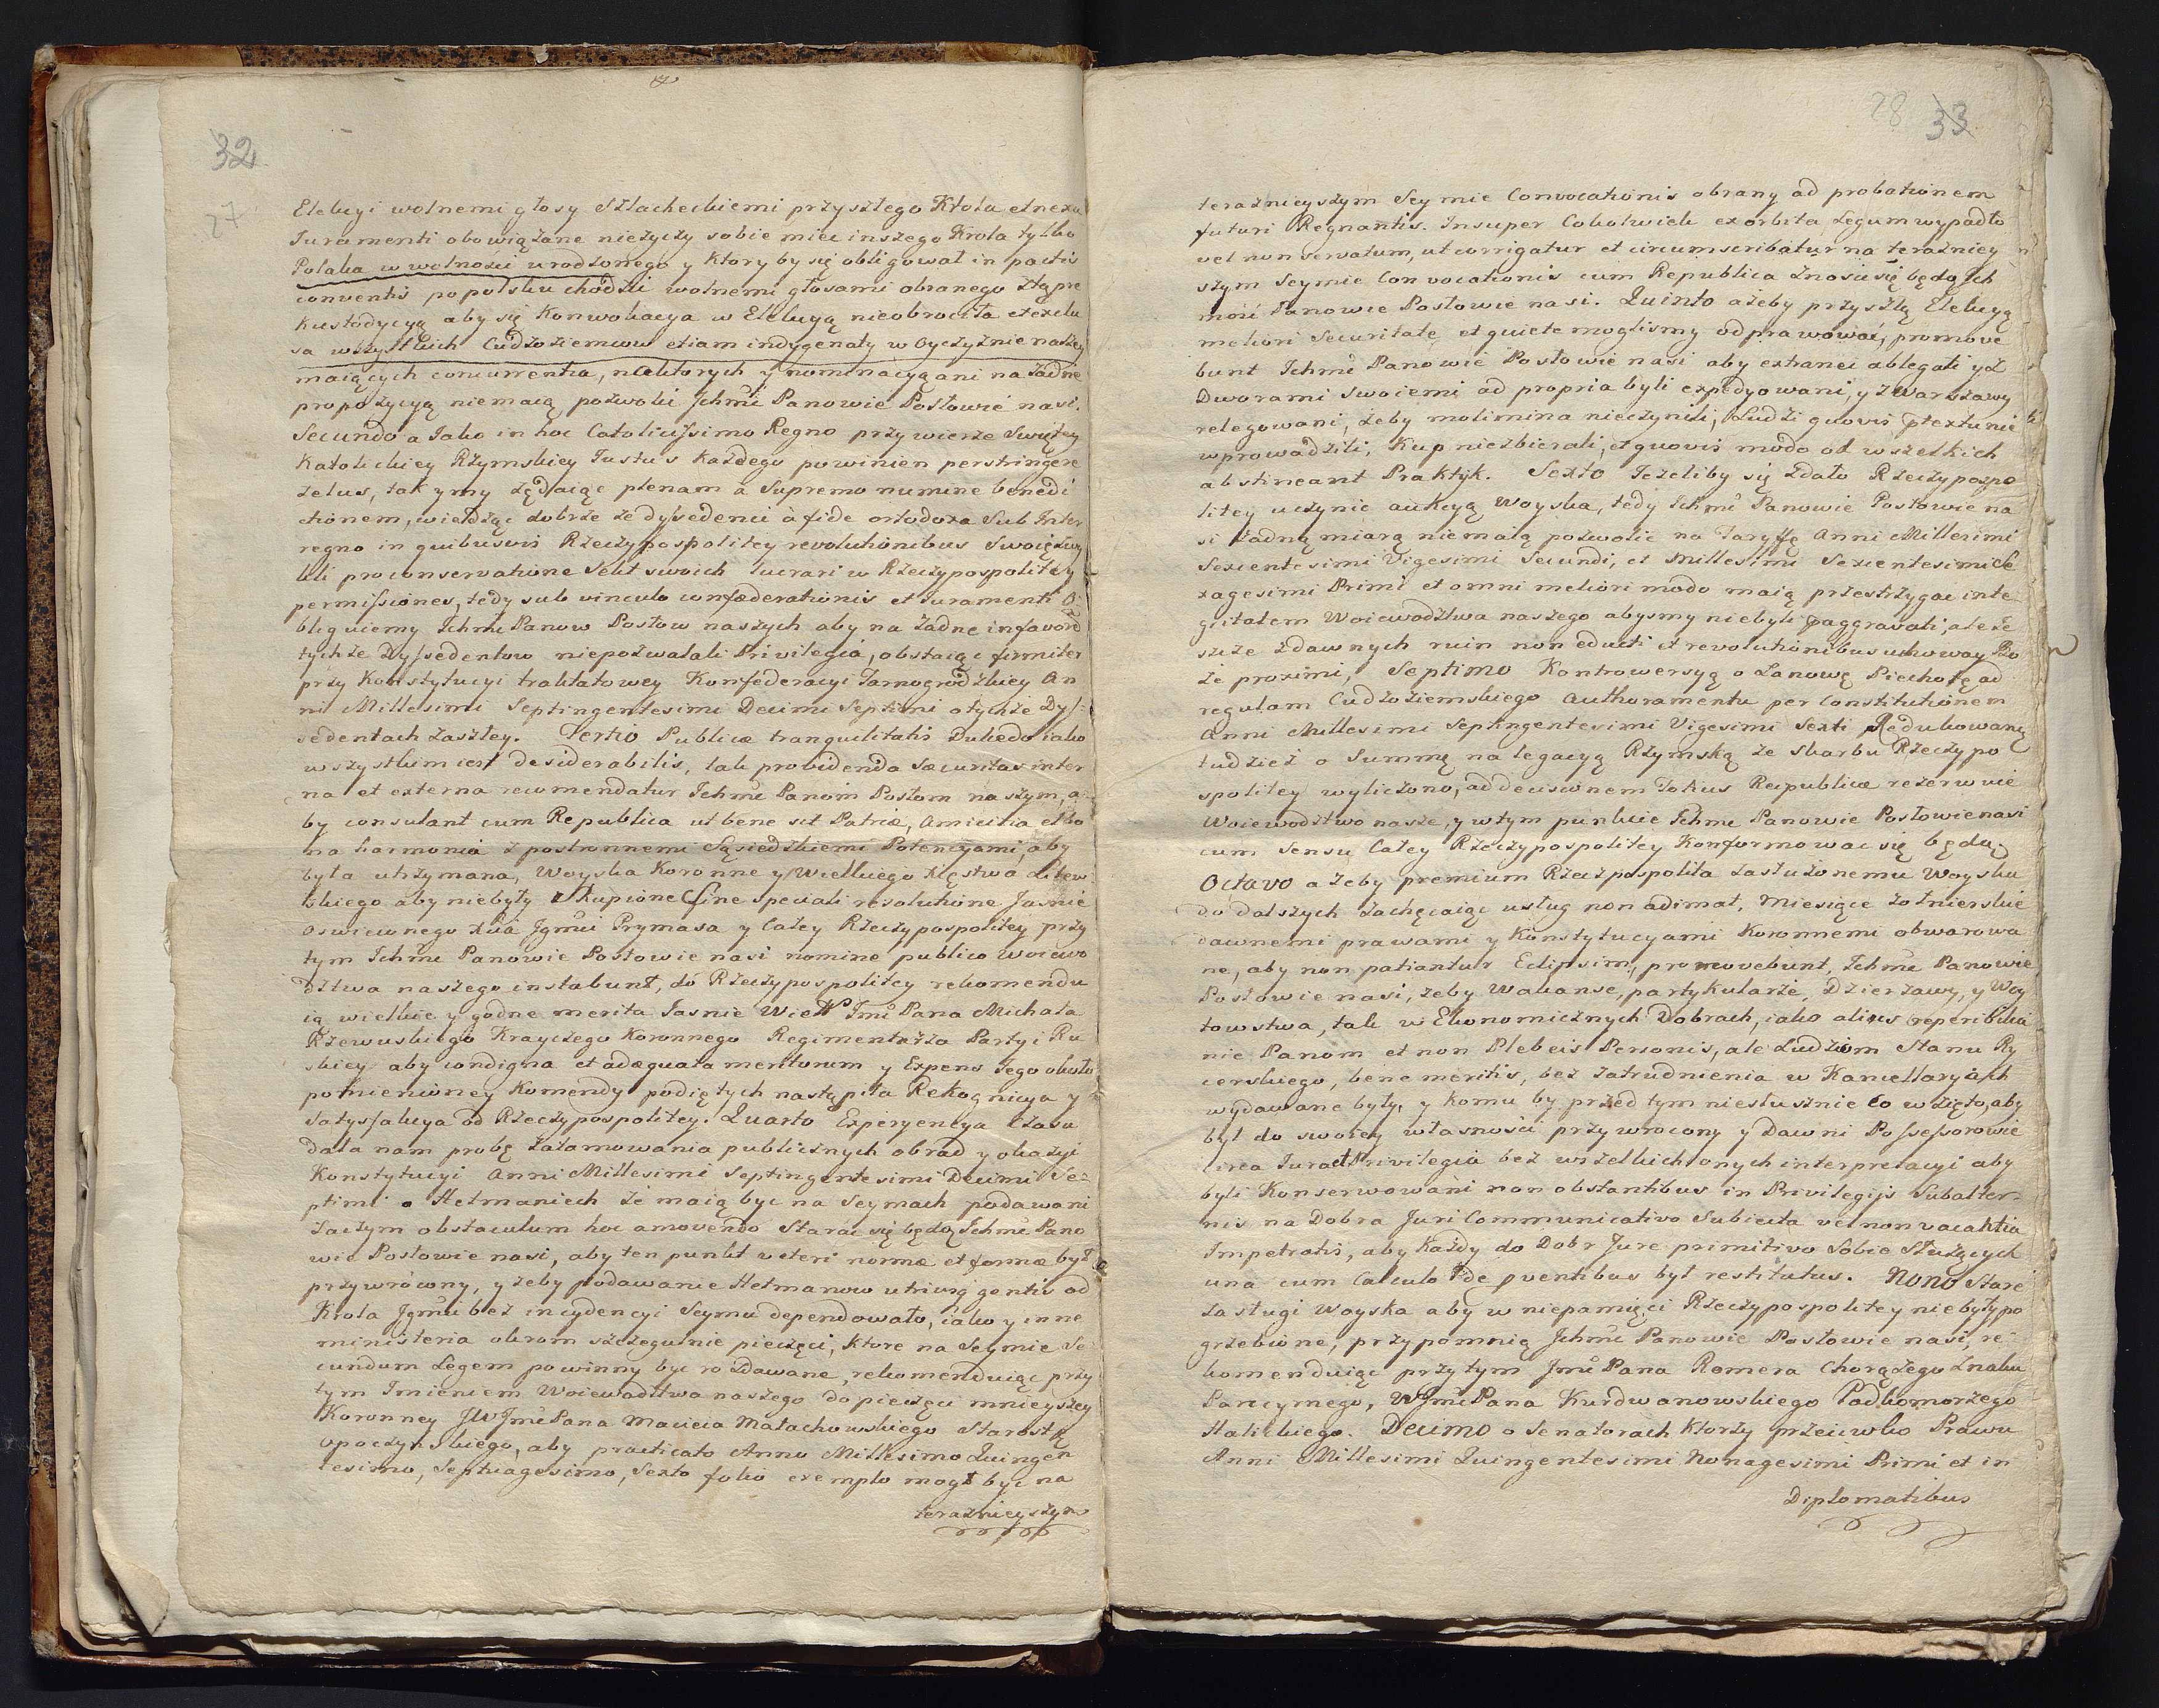 32
27
Elekcyi wolnemi głosy Szlacheckiemi przyszłego Krola et nexu
Juramenti obowiązane nieżyczy sobie miec inszego Krola tylko
Polaka w wolności urodzonego y ktory by się obligował in pactis
conventis po polsku chodzić wolnemi głosami obranego ztą pre
kustodycyą aby się Konwokacya w Elekcyą nieobrociła et exclu
sa wszystkich Cudzoziemcow etiam indygenaty w Oyczyznie naszey
maiących concurrentia, na ktorych y nominacyą ani na żadne
propozycyą niemaią pozwolić Ichmć Panowie Posłowie nasi.
Secundo a Iako in hoc Catolicissimo Regno przy wierze Swiętey
Katolickiey Rzymskiey Justus każdego powinien perstringere
zelus, tak y my żądaiąc plenam a Supremo numine benedi
ctionem, wiedząc dobrze że dyssedenci à fide ortodoxa Sub Inter
regno in quibusvis Rzeczypospolitey revolutionibus Swoię zwy
kli pro conservatione Sekt swoich lucrari w Rzeczypospolitey
permissiones, tedy sub vinculo confœderationis et Juramenti O
bliguiemy Ichmć Panow Posłow naszych aby na żadne in favore
tychże Dyssedentow niepozwalali Privilegia, obstaiąc firmiter
przy Konstytucyi traktatowey Konfederacyi Tarnogrodzkiey An
ni Millesimi Septingentesimi Decimi Septimi o tychże Dys
sedentach zaszłey. Tertio Publicæ tranquilitatis Dulcedo iako
wszystkim iest desiderabilis, tak providenda Securitas inter
na et externa recomendatur Ichmć Panom Posłom naszym, a
by consulant cum Republica ut bene sit Patriæ, Amicitia et bo
na harmonia z postronnemi Sąsiedzkiemi Potencyami, aby
była utrzymana, Woyska Koronne y Wielkiego Xięstwa Litew
skiego aby niebyły skupione Sine Speciali resolutione Jasnie
Oswieconego Xcia Jgmci Prymasa y Całey Rzeczypospolitey przy
tym Ichmć Panowie Posłowie nasi nomine publico Woiewo
dztwa naszego instabunt, do Rzeczypospolitey rekomendu
ią wielkie y godne merita Jasnie Wiel Jmci Pana Michała
Rzewuskiego Krayczego Koronnego Regimentarza Partyi Ru
skiey aby condigna et adæquata meritorum y Expens Jego około
pomienioney Komendy podiętych nastąpiła Rekognicya y
Satysfakcya od Rzeczypospolitey. Quarto Experyencya Czasu
dała nam probę załamowania publicznych obrad y okazyi
Konstytucyi Anni Millesimi Septingentesimi Decimi Se
ptimi o Hetmaniech że maią byc na Seymach podawani
Zaczym obstaculum hoc amovendo Starac się będą Ichmć Pano
wie Posłowie nasi, aby ten punkt veteri normæ et formæ był
przywrócony, y żeby podawanie Hetmanow utriusq gentis od
Krola Jgmci bez incydencyi Seymu dependowało, iako y inne
ministeria okrom szczegulnie pieczęci, ktore na Seymie Se
cundum Legem powinny byc rozdawane, rekomenduiąc przy
tym Imieniem Woiewodztwa naszego do pieczęci mnieyszey
Koronney JW Jmci Pana Macieia Małachowskiego Starostę
Opoczynskiego, aby practicato Anno Millesimo Quingen
tesimo, Septuagesimo, Sexto folio exemplo mogł byc na
teraznieyszym
28 33
teraznieyszym Seymie Convocationis obrany ad probationem
futuri Regnantis. Insuper Cokolwiek exorbita Legum wypadło
vel non servatum, ut corrigatur et circumscribatur na teraźniey
szym Seymie Convocationis cum Republica znosić się będą Ich
mość Panowie Posłowie nasi. Quinto ażeby przyszłą Elekcyą
meliori Securitate, et quiete moglismy odprawować, promove
bunt Ichmć Panowie Posłowie nasi aby extranei ablegati y z
Dworami Swoiemi ad propria byli expedyowani, y z Warszawy
relegowani, żeby molimina nieczynili, Ludzi quovis ptextu nie
wprowadzili, Kup niezbierali, et quovis modo od wszelkich
abstineant Praktyk. Sexto Jeżeliby się zdało Rzeczypospo
litey uczynic aukcyą Woyska, tedy Ichmć Panowie Posłowie na
si żadną miarą niemaią pozwolic na Taryffę Anni Millesimi
Sexcentesimi Vigesimi Secundi, et Millesimi Sexcentesimi Se
xagesimi Primi et omni meliori modo maią przestrzygac inte
gritatem Woiewodztwa naszego abysmy niebyli paggravati, ale Je
szcze zdawnych ruin non educti et revolutionibus uchoway Bo
że proximi, Septimo Kontrowersyą o Łanowę Piechotę ad
regulam Cudzoziemskiego authoramentu per Constitutionem
Anni Millesimi Septingentesimi Vigesimi Sexti Redukowaną
tudzież o Summę na legacyą Rzymską ze Skarbu Rzeczypo
spolitey wyliczono, ad decisionem Totius Reipublicæ rezerwuie
Woiewodztwo nasze, y wtym punkcie Ichmć Panowie Posłowie nasi
cum Sensu Całey Rzeczypospolitey Konformowac się będą.
Octavo ażeby premium Rzeczpospolita zasłużonemu Woysku
do dalszych zachęcaiąc usług non adimat, Miesiące żołnierskie
dawnemi prawami y Konstytucyami Koronnemi obwarowa
ne, aby non patiantur Eclipsim, promovebunt, Ichmć Panowie
Posłowie nasi, żeby Wakanse, partykularze, Dzierżawy, y Woy
towstwa, tak w Ekonomicznych Dobrach, iako alias reperibilia
nie Panom et non Plebeis Personis, ale Ludziom Stanu Ry
cerskiego, bene meritis, bez zatrudnienia w Kancellaryiach
wydawane były, y komu by przed tym niesłusznie co wzięto, aby
był do swoiey własności przywrocony y Dawni Possessorowie
circa Jura et Privilegia bez wszelkich onych interpretacyi aby
byli Konserwowani non obstantibus in Privilegijs Subalter
nis na Dobra Juri Communicativo Subiecta vel non vacantia
Impetratis, aby każdy do Dobr Jure primitivo Sobie Służących
una cum Calculo de pventibus był restitutus. Nono Stare
zasługi Woyska aby w niepamięci Rzeczypospolitey niebyły po
grzebione, przypomnią Ichmć Panowie Posłowie nasi, re
komenduiąc przytym Jmci Pana Romera Chorążego Znaku
Pancymego, W Jmci Pana Kurdwanowskiego Podkomorzego
Halickiego. Decimo o Senatorach ktorzy przeciwko Prawu
Anni Millesimi Quingentesimi Nonagesimi Primi et in
Diplomatibus